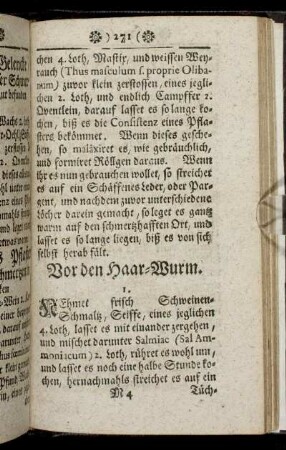 ) 271 (
chen 4. Loth, Mastix, und weissen Wey-
rauch (Thus masculum s. proprie Oliba-
num) zuvor klein zerstossen, eines jegli-
chen 2. Loth, und endlich Campffer 2.
Qventlein, darauf lasset es so lange ko-
chen, biß es die Consistenz eines Pfla-
sters bekömmet. Wenn dieses gesche-
hen, so malaxiret es, wie gebräuchlich,
und formiret Röllgen daraus. Wenn
ihr es nun gebrauchen wollet, so streichet
es auf ein Schäffenes Leder, oder Par-
gent, und nachdem zuvor unterschiedene
Löcher darein gemacht, so leget es gantz
warm auf den schmertzhafften Ort, und
lasset es so lange liegen, biß es von sich
selbst herab fält.
Vor den Haar-Wurm.
1.
NEhmet frisch Schweinen-
Schmaltz, Seiffe, eines jeglichen
4. Loth, lasset es mit einander zergehen,
und mischet darunter Salmiac (Sal Am-
moniacum) 2. Loth, rühret es wohl um,
und lasset es noch eine halbe Stunde ko-
chen, hernachmahls streichet es auf ein
M 4 Tüch-